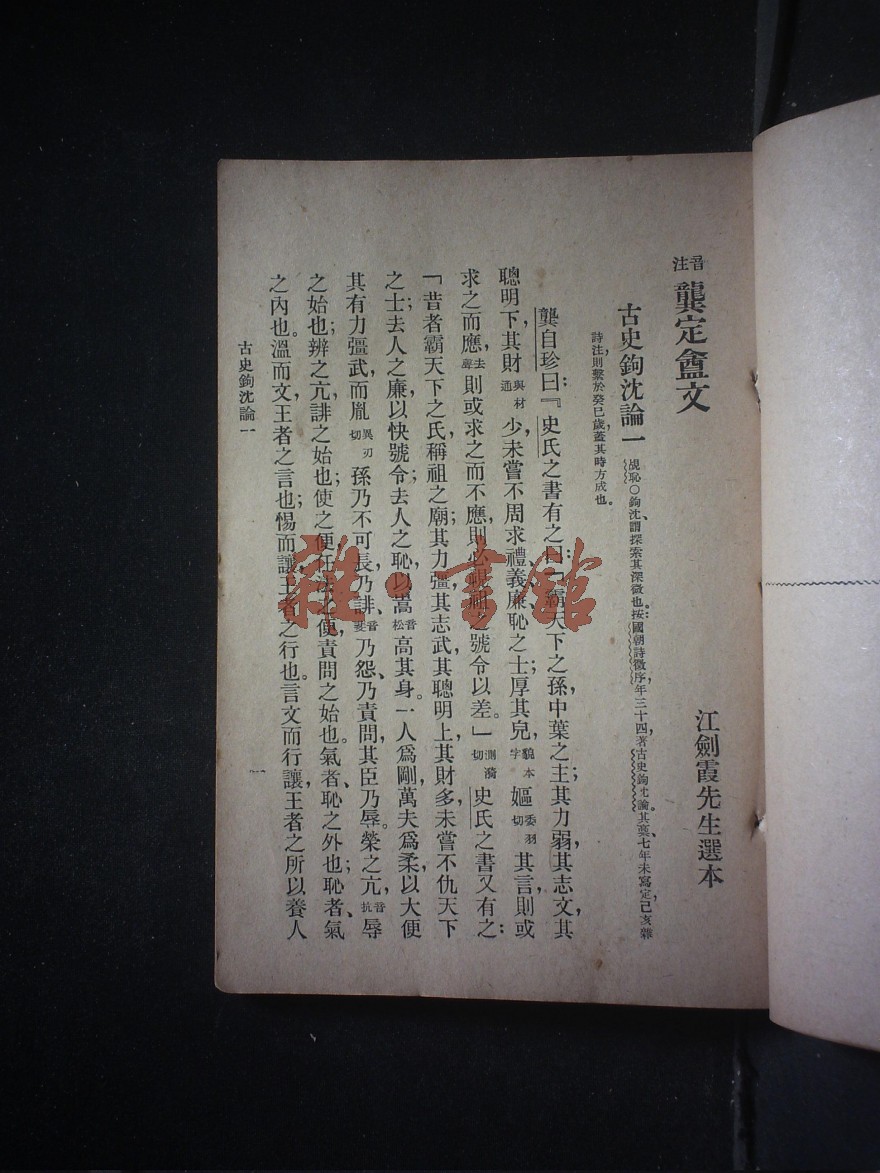 音注 龔定盦文
江劍霞先生選本
古史鉤沈論一 覘恥○鉤沈、謂探索其深微也。按:國朝詩徵序,年三十四,著古史鉤沈論。其藁、七年未寫定,己亥雜
詩注,則繫於癸巳歲,蓋其時方成也。
龔自珍曰:『史氏之書有之曰:「霸天下之孫,中葉之主;其力弱,其志文,其
聰明下,其財 與材通 少,未嘗不周求禮義廉恥之士;厚其皃, 本貌字 嫗 委羽切 其言,則或
求之而應, 去聲 則或求之而不應,則必視祖之號令以差。」 測漪切 史氏之書又有之:
「昔者霸天下之氏,稱祖之廟;其力彊,其志武,其聰明上,其財多,未嘗不仇天下
之士;去人之廉,以快號令;去人之恥,以嵩 音松 高其身。一人爲剛,萬夫爲柔,以大便
其有力彊武,而胤 異刃切 孫乃不可長,乃誹、乃怨、乃責問,其臣乃辱。榮之亢, 音抗 辱
之始也;辨之亢,誹之始也;使之便,任法之便,責問之始也。氣者、恥之外也;恥者、氣
之內也。溫而文,王者之言也;惕而讓,王者之行也。言文而行讓,王者之所以養人
古史鉤沈論一
一
雜·書館